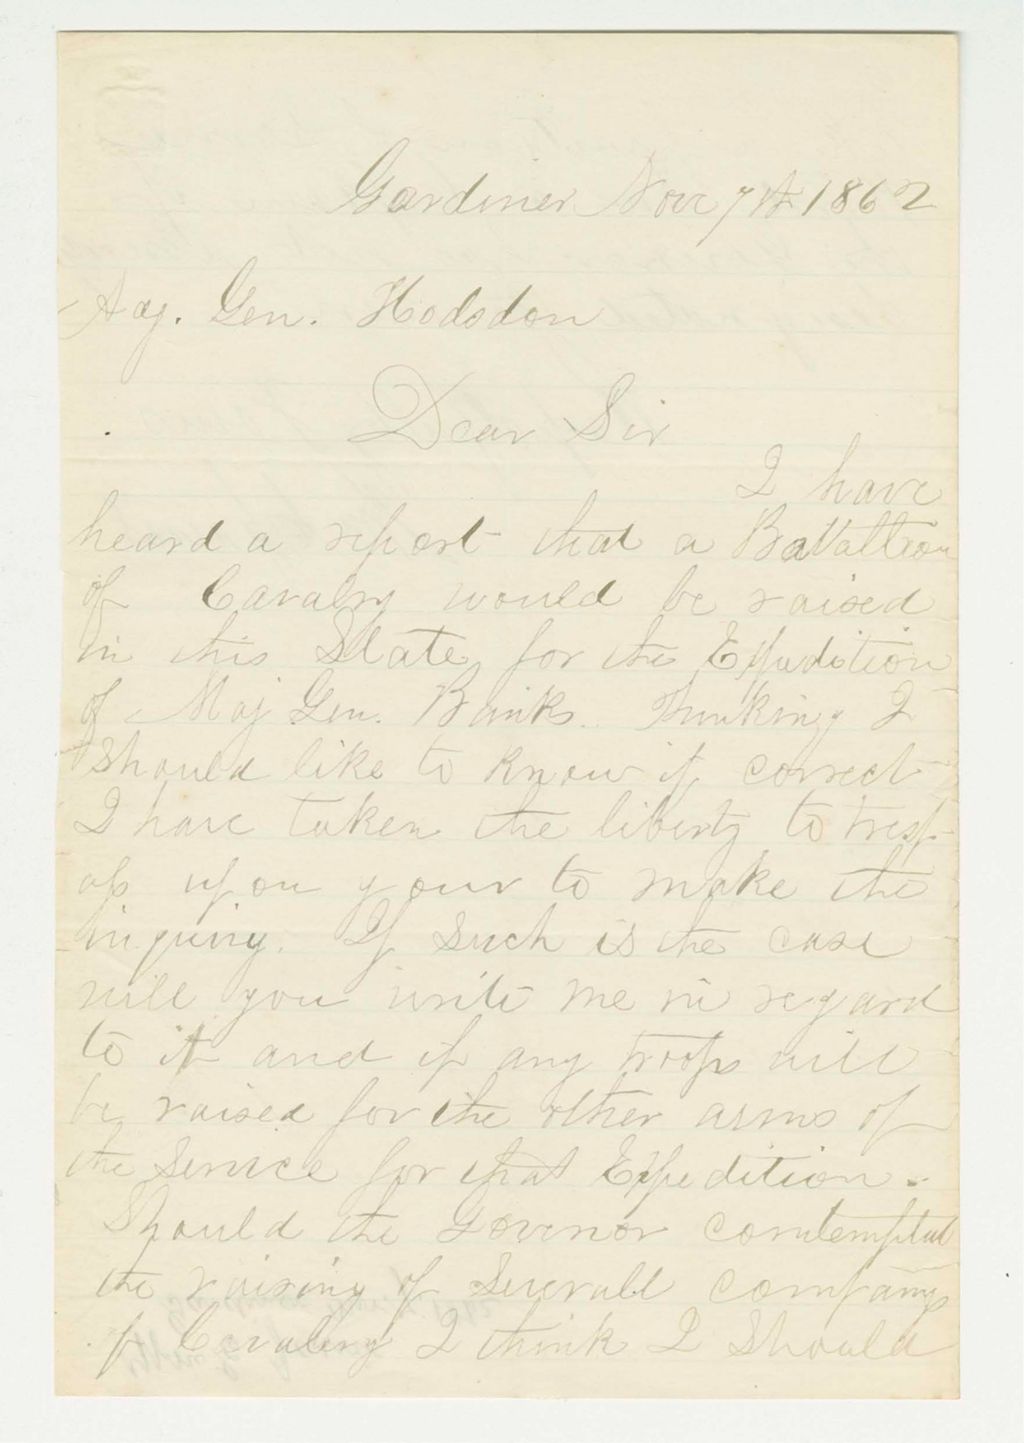 Gardiner Nov 7th 1862
Adj. Gen. Hodsdon
Dear Sir
I have
heard a report that a Battallion
of Cavalry would be raised
in this State for the Expedition
of Maj Gen. Banks. Thinking I
should like to know if correct
I have taken the liberty to tresp-
ass upon your to make the
inquiry. If such is the case
will you write me in regard
to it and if any troops will
be raised for the other arms of
the Service for that Expedition.
Should the Govenor contemplate
the raising of Severall companys
of Cavalery I think I Should